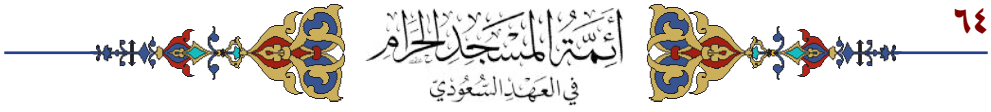 ٦٤
أَئِمَّةُ المَسْجِدِ الحَرَامِ
في العَهْدِ السُّعُودِيّ